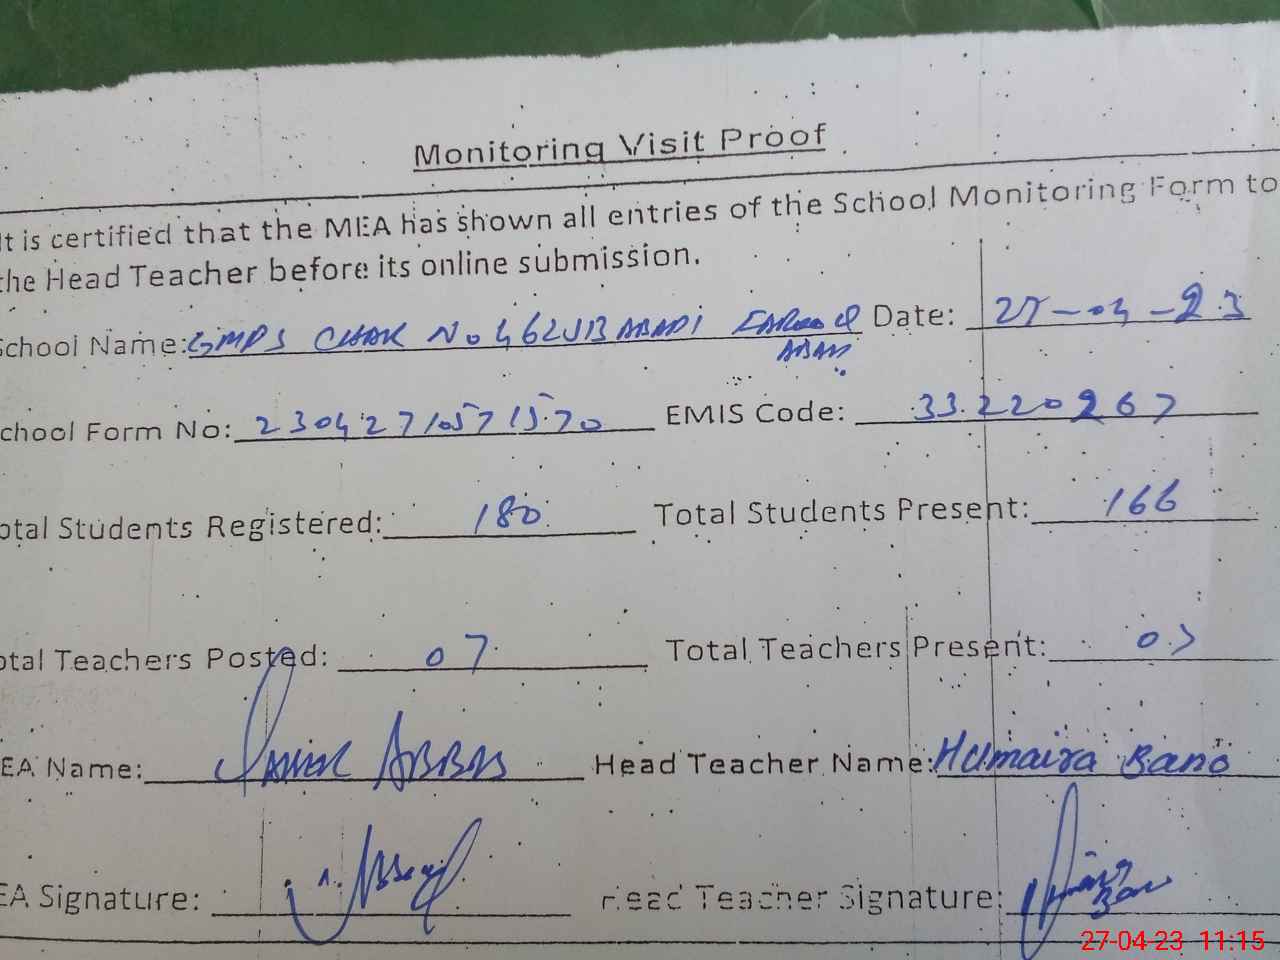 Monitoring Visit Proof
It is certified that the MEA has shown all entries of the School Monitoring Form to
the Head Teacher before its online submission.
School Name: GMPS CHAK No 462JB ABADI FAROOQ Date: 27-04-23
ABAD
chool Form No: 23042710571570 EMIS Code: 33220267
otal Students Registered: 180 Total Students Present: 166
otal Teachers Posted: 07 Total Teachers Present: 07
EA Name: ABBAS Head Teacher Name: Humaira Bano
EA Signature: Head Teacher Signature:
27-04-23 11:15